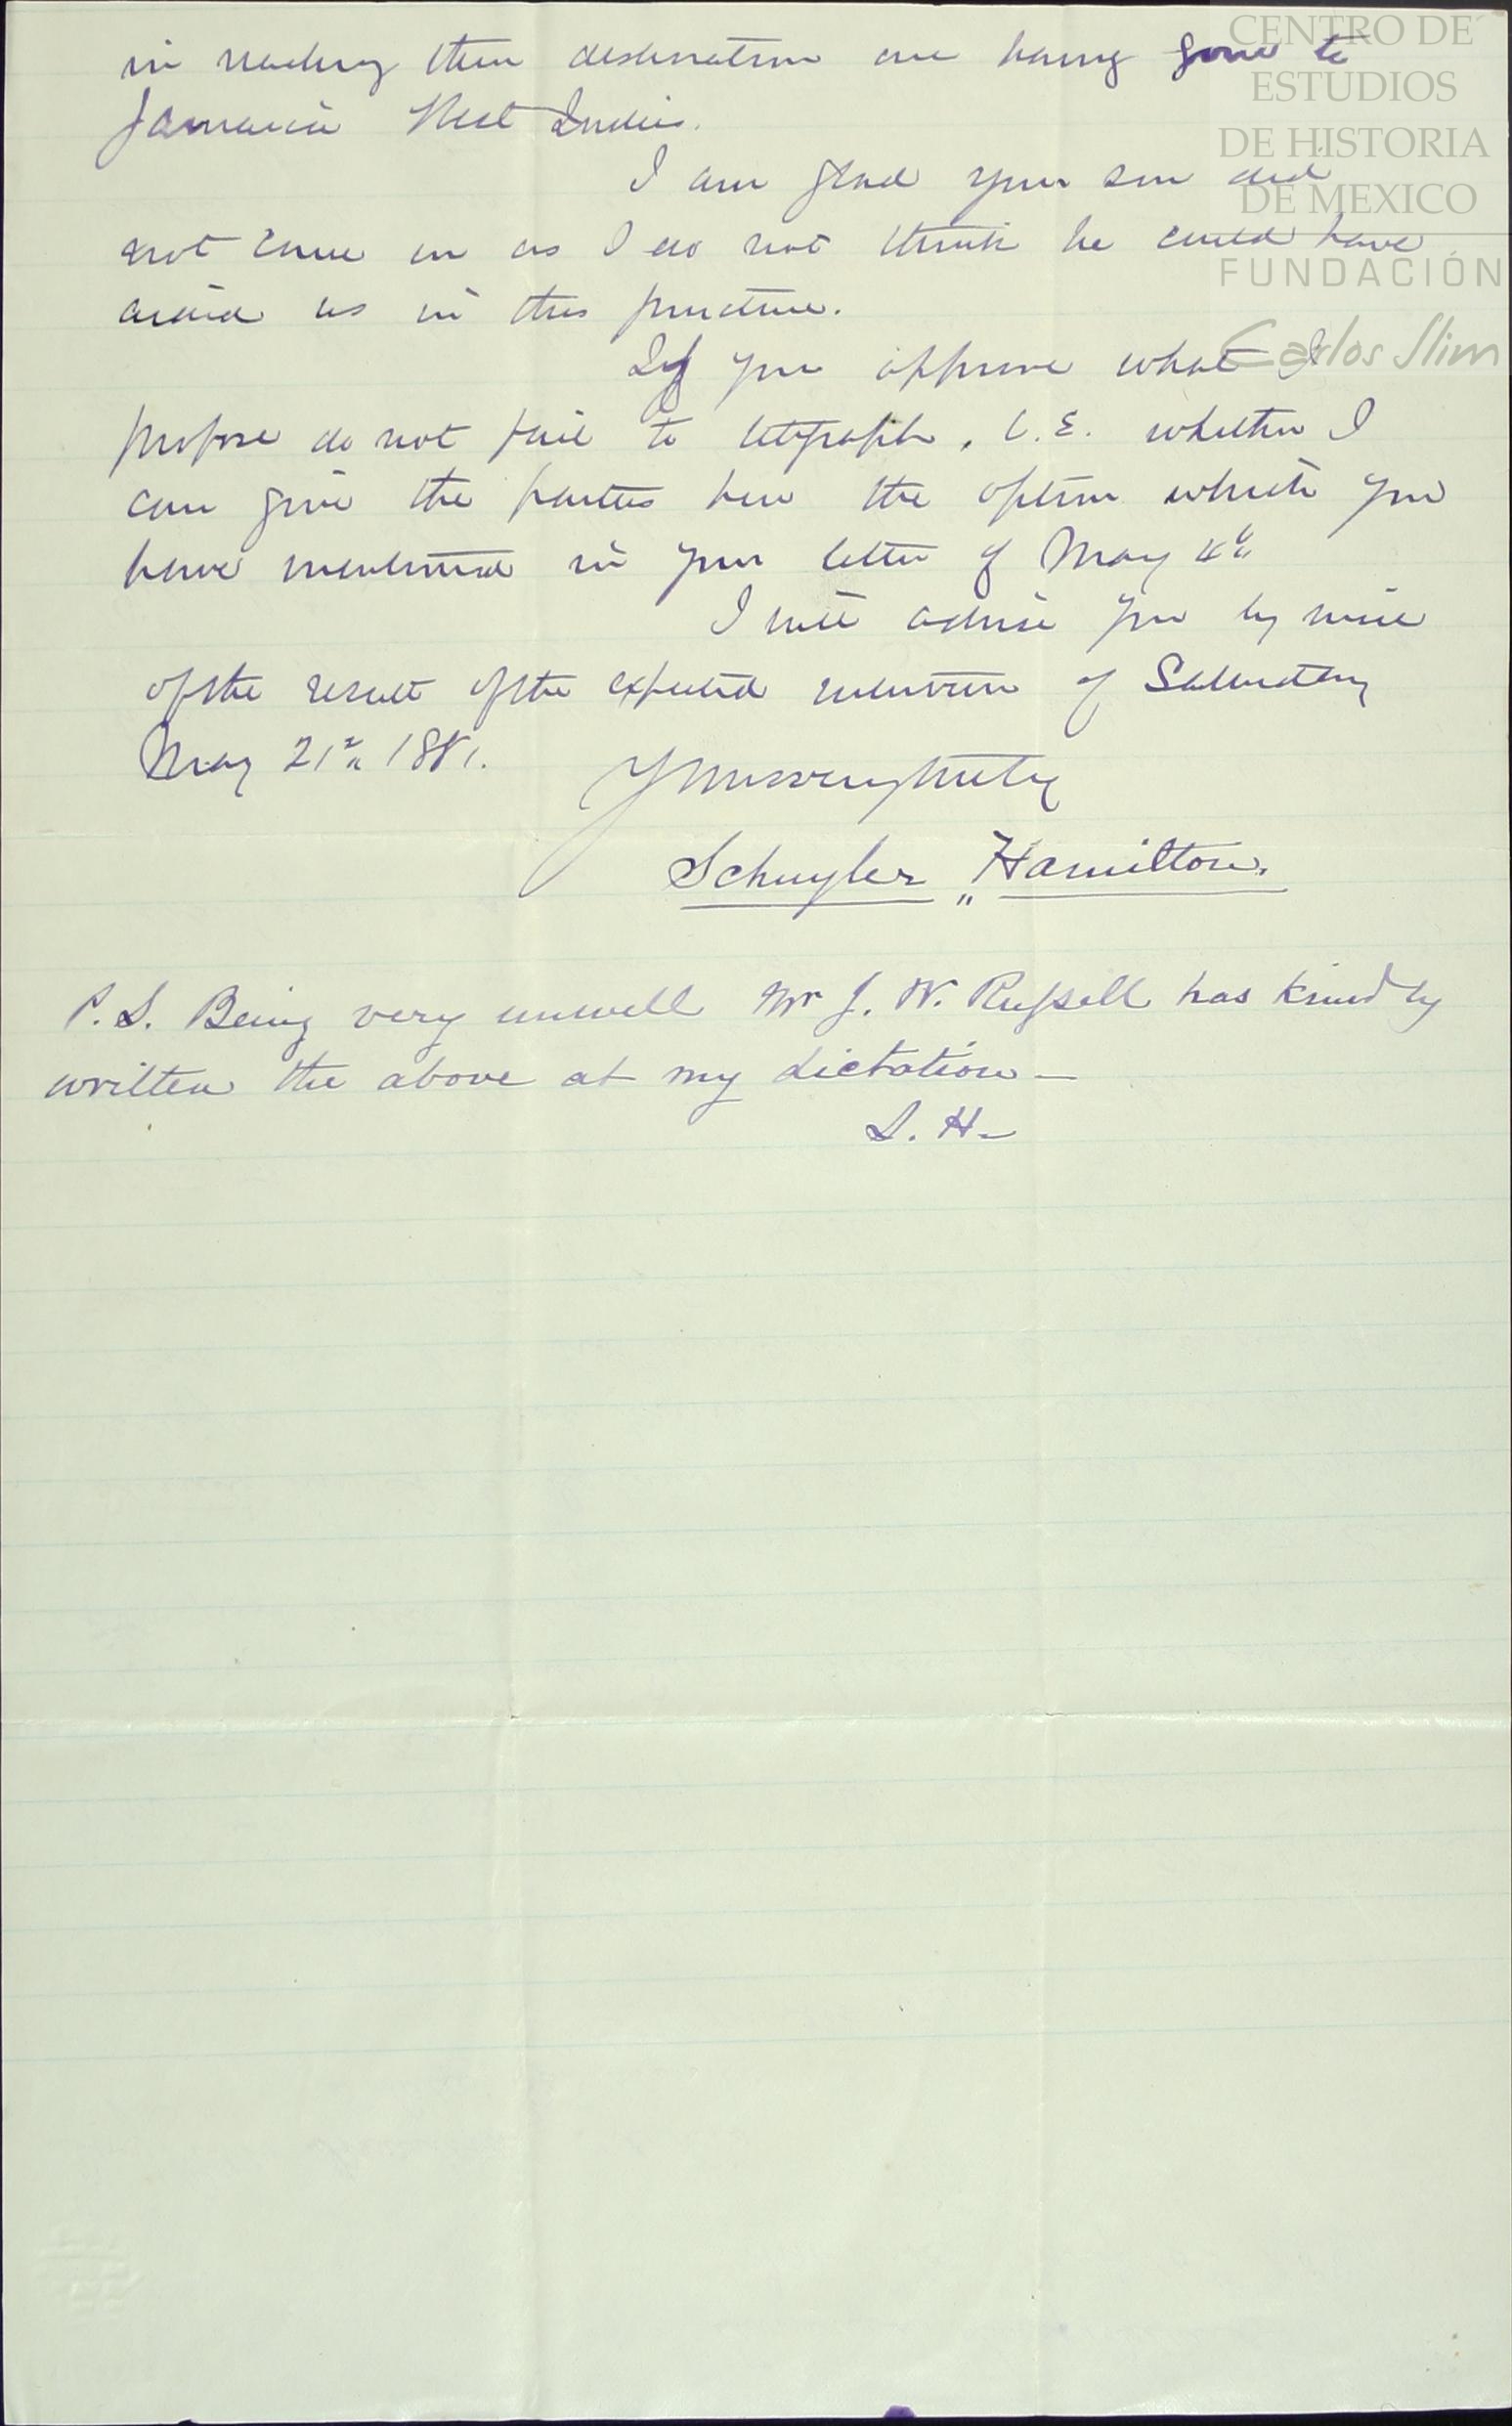 in reaching their destination one having gone to
Jamaica West Indies.
I am glad your son did
not come on as I do not think he could have
aided us in this juncture.
If you approve what I
propose do not fail to telegraph, C.E. whether I
can give the parties here the option which you
have mentioned in your letter of May
I will advise you by mail
of the result of the expected interview of Saturday
May 21st 1881.
Yours very truly
Schuyler Hamilton.
P.S. Being very unwell Mr J. W. Russell has kindly
written the above at my dictation —
S. H —
CENTRO DE
ESTUDIOS
DE HISTORIA
DE MEXICO
FUNDACIÓN
Carlos Slim